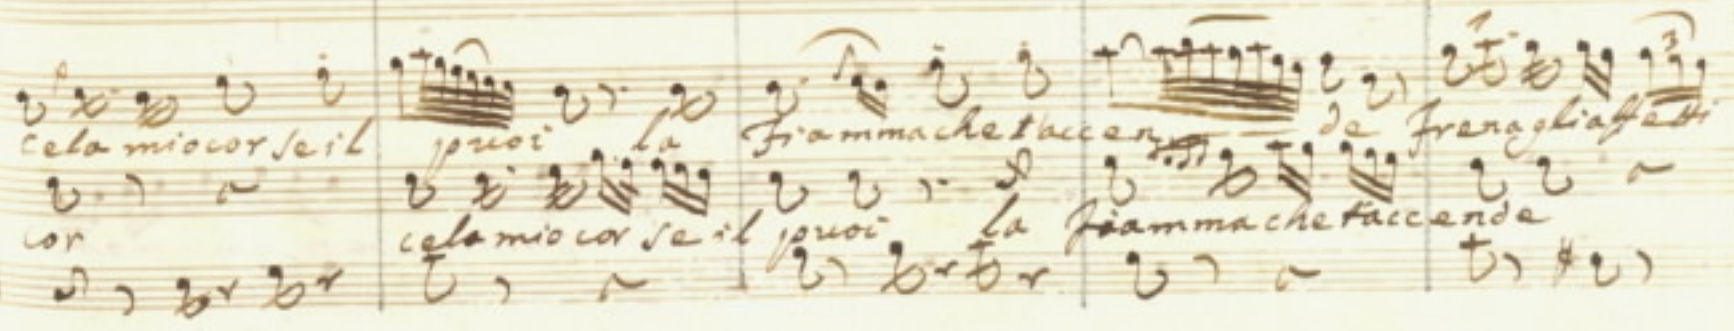 cela mio cor se il puoi la Fiamma che t'accen de Frena gli affetti
cor cela mio cor se il puoi la Fiamma che t'accende